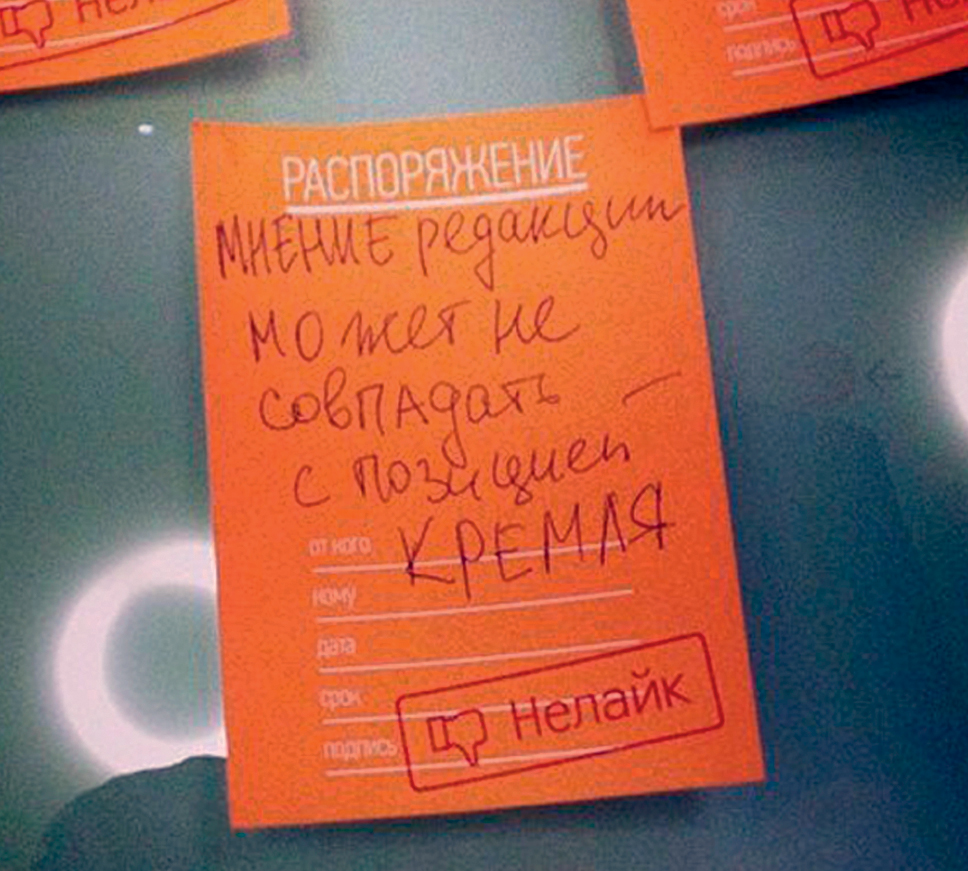 Нелайк
срок
подпись
РАСПОРЯЖЕНИЕ
МНЕНИЕ редакции
может не
совпадать –
с позицией
КРЕМЛЯ
от кого
кому
дата
срок
подпись
Нелайк